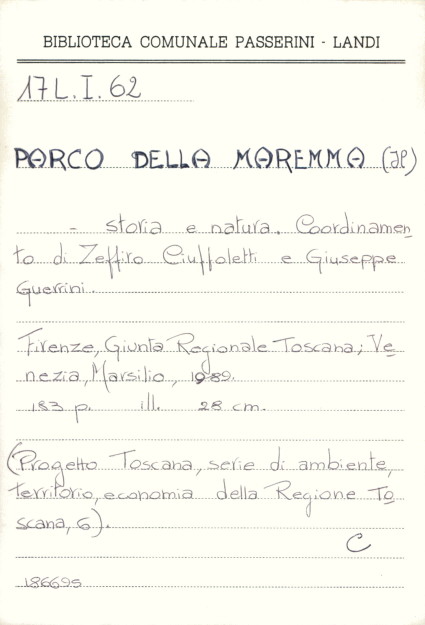 BIBLIOTECA COMUNALE PASSERINI - LANDI
17L.I.62
PARCO DELLA MAREMMA (IL)
- storia e natura. Coordinamen
to di Zeffiro Ciuffoletti e Giuseppe
Guerrini.
Firenze, Giunta Regionale Toscana; Ve
nezia, Marsilio, 1989.
183 p. ill. 28 cm.
(Progetto Toscana, serie di ambiente,
territorio, economia della Regione To
scana, 6).
C
186695